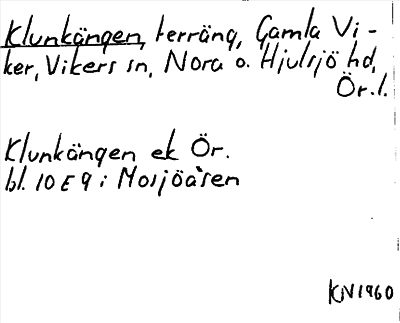 Klunkängen, terräng, Gamla Vi-
ker, Vikers sn, Nora o. Hjulsjö hd,
Ör. l.
Klunkängen ek Ör.
bl. 10 E 9 i Mosjöåsen
KN 1960